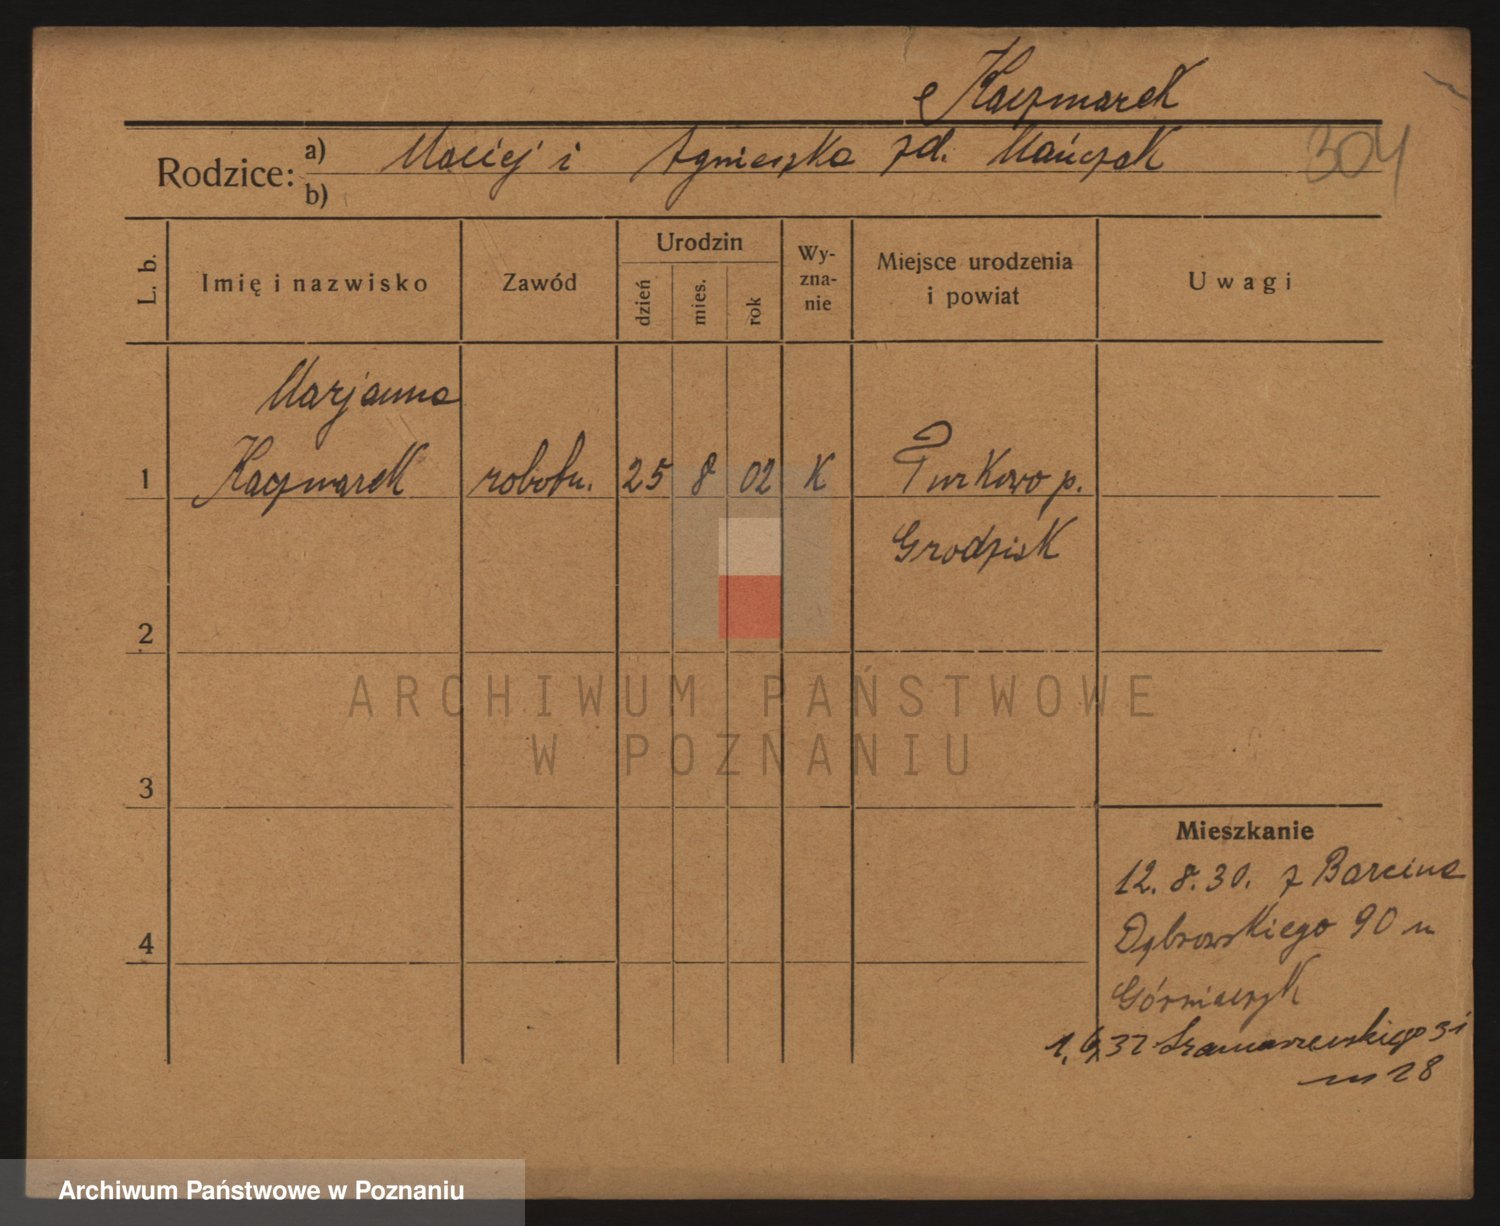 Kaczmarek
Rodzice: a) Maciej i Agnieszka zd. Mańczak
304
b)
L. b.
Imię i nazwisko
Zawód
Urodzin
dzień
mies.
rok
Wy-
zna-
nie
Miejsce urodzenia
i powiat
Uwagi
Marjanna
1 Kaczmarek robotn. 25 8 02 K Turkowo p.
Grodzisk
2
ARCHIWUM PAŃSTWOWE
W POZNANIU
3
Mieszkanie
12.8.30. z Barcina
Dąbrowskiego 90 u
4
Górniaczyk
32 Szamarzewskiego
m 28
Archiwum Państwowe w Poznaniu